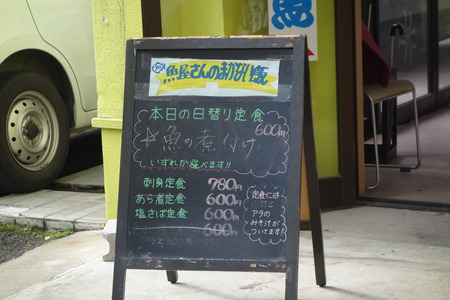 魚屋さんのおかない飯
本日の日替り定食
600円
☆魚の煮付け
いずれか選べます!!
刺身定食 780円
あら煮定食 600円
塩さば定食 600円
600円
定食には
アラの
みそ汁が
ついてます!
魚